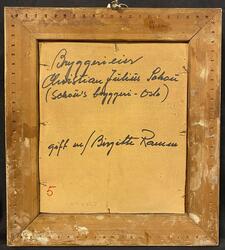 Bryggerieier
Christian Julius Schou
(Schou's bryggeri - Oslo)
gift m/ Birgitte Ramm
5